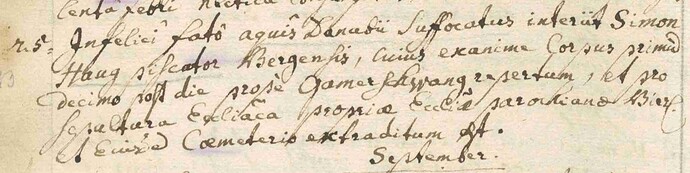 centa petri
n. 5. Infelici fatô aquis Danubii suffocatus interiit Simon
Haug piscator Bergensis, cuius exanime Corpus primũ
decimo post die prope Gamerschwang repertum, et pro
sepultura Eccliãca propriæ Eccliæ parochianæ
et Cœmeterio extraditum est.
September.